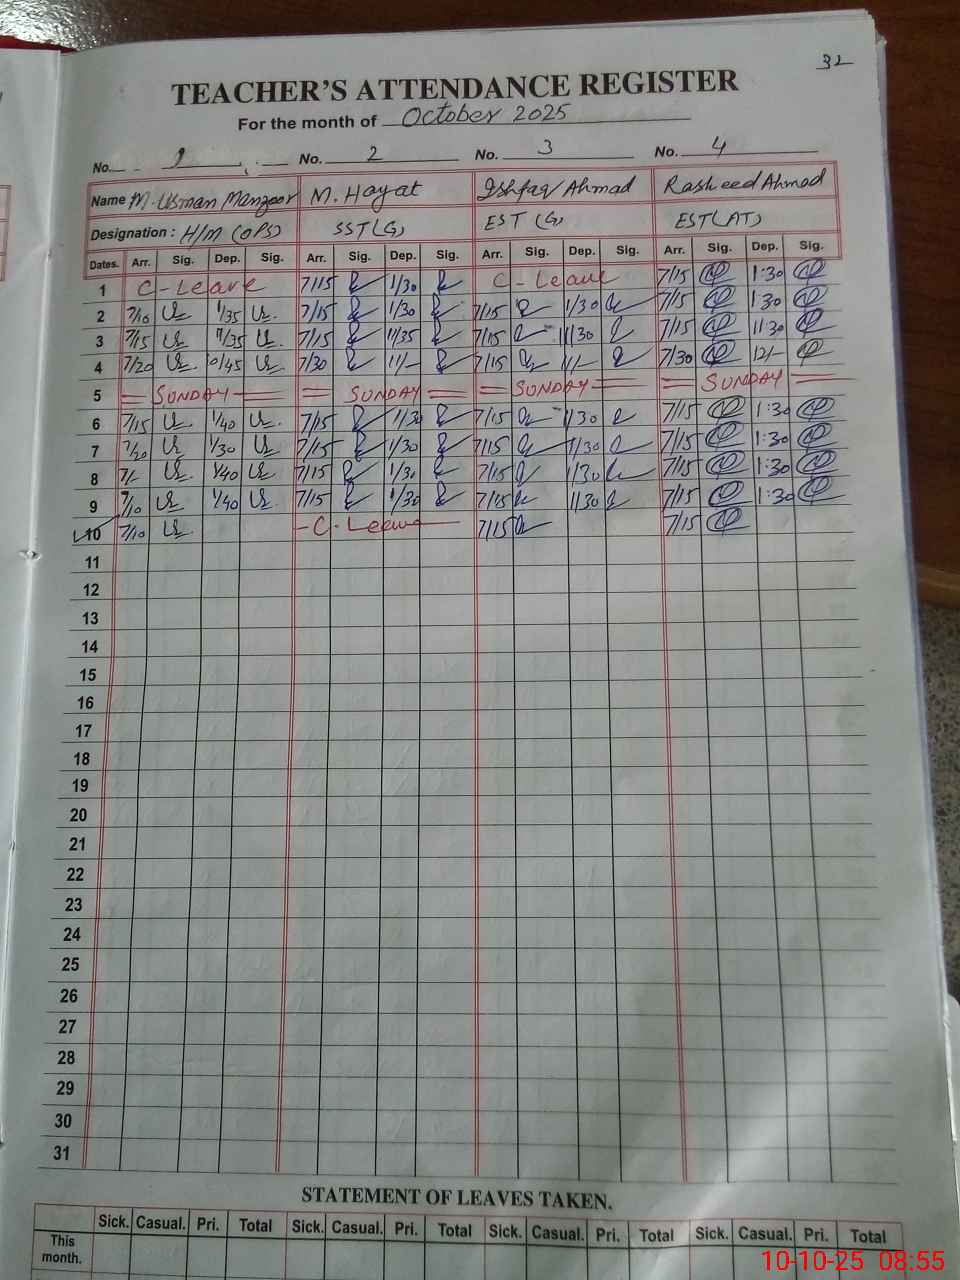 32
TEACHER'S ATTENDANCE REGISTER
For the month of October 2025
No. 1 No. 2 No. 3 No. 4
Name M. Usman Manzoor M. Hayat Ishfaq Ahmad Rasheed Ahmad
Designation : H/M (OPS) SST (G) EST (G) EST (AT)
Dates. Arr. Sig. Dep. Sig. Arr. Sig. Dep. Sig. Arr. Sig. Dep. Sig. Arr. Sig. Dep. Sig.
1 C - Leave 7/15 1/30 C - Leave 7/15 1:30
2 7/10 1/35 7/15 1/30 7/15 1/30 7/15 1:30
3 7/15 11/35 7/15 11/35 7/15 11/30 7/15 11:30
4 7/20 10/45 7/30 11/- 7/15 11/- 7/30 12/-
5 SUNDAY SUNDAY SUNDAY SUNDAY
6 7/15 1/40 7/15 1/30 7/15 1/30 7/15 1:30
7 7/20 1/30 7/15 1/30 7/15 1/30 7/15 1:30
8 7/- 1/40 7/15 1/30 7/15 1/30 7/15 1:30
9 7/10 1/40 7/15 1/30 7/15 1/30 7/15 1:30
10 7/10 - C - Leave 7/15 7/15
11
12
13
14
15
16
17
18
19
20
21
22
23
24
25
26
27
28
29
30
31
STATEMENT OF LEAVES TAKEN.
Sick. Casual. Pri. Total Sick. Casual. Pri. Total Sick. Casual. Pri. Total Sick. Casual. Pri. Total
This
month.
10-10-25 08:55